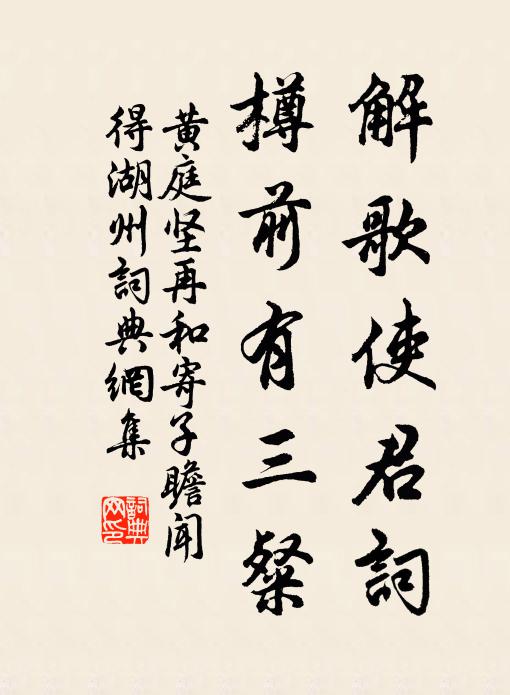 解歌使君詞
樽前有三粲
黄庭坚再和寄子瞻聞
得湖州詞典網集
詞典
网印